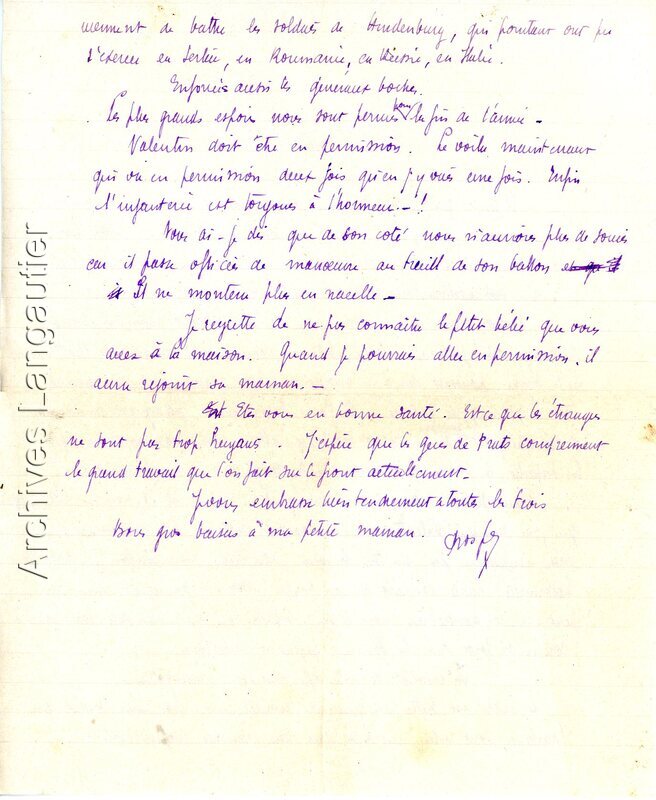 viennent de battre les soldats de Hindenburg, qui pourtant ont pu
s'exercer en Serbie, en Roumanie, en Russie, en Italie.
Enfoncés aussi les généraux boches.
Les plus grands espoirs nous sont permis pour la fin de l'année -
Valentin doit être en permission. Le voila maintenant
qui va en permission deux fois quand j'y vais une fois. Enfin
l'infanterie est toujours à l'honneur - !
Vous ai-je dis que de son coté nous n'aurions plus de soucis
car il passe officier de manoeuvre au treuil de son ballon
Il ne montera plus en nacelle -
Je regrette de ne pas connaitre le petit bébé que vous
avez à la maison. Quand je pourrais aller en permission, il
aura rejoint sa maman. -
Etes vous en bonne santé. Est ce que les étrangers
ne sont pas trop. J'espère que les gens de Prats comprennent
le grand travail que l'on fait sur le front actuellement -
Je vous embrasse bien tendrement a toutes les trois
Bons gros baisers à ma petite maman.
Archives Langautier